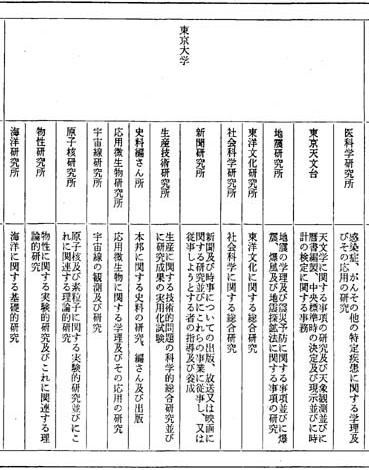 東京大学
医科学研究所
感染症、がんその他の特定疾患に関する学理及
びその応用の研究
東京天文台
天文学に関する事項の研究及び天象観測並びに
暦書編製、中央標準時の決定及び現示並びに時
計の検定に関する事務
地震研究所
地震の学理及び震災予防に関する事項並びに爆
震、爆風及び地震探鉱法に関する事項の研究
東洋文化研究所
東洋文化に関する総合研究
社会科学研究所
社会科学に関する総合研究
新聞研究所
新聞及び時事についての出版、放送又は映画に
関する研究並びにこれらの事業に従事し、又は
従事しようとする者の指導及び養成
生産技術研究所
生産に関する技術的問題の科学的総合研究並び
に研究成果の実用化試験
史料編さん所
本邦に関する史料の研究、編さん及び出版
応用微生物研究所
応用微生物に関する学理及びその応用の研究
宇宙線研究所
宇宙線の観測及び研究
原子核研究所
原子核及び素粒子に関する実験的研究並びにこ
れに関連する理論的研究
物性研究所
物性に関する実験的研究及びこれに関連する理
論的研究
海洋研究所
海洋に関する基礎的研究